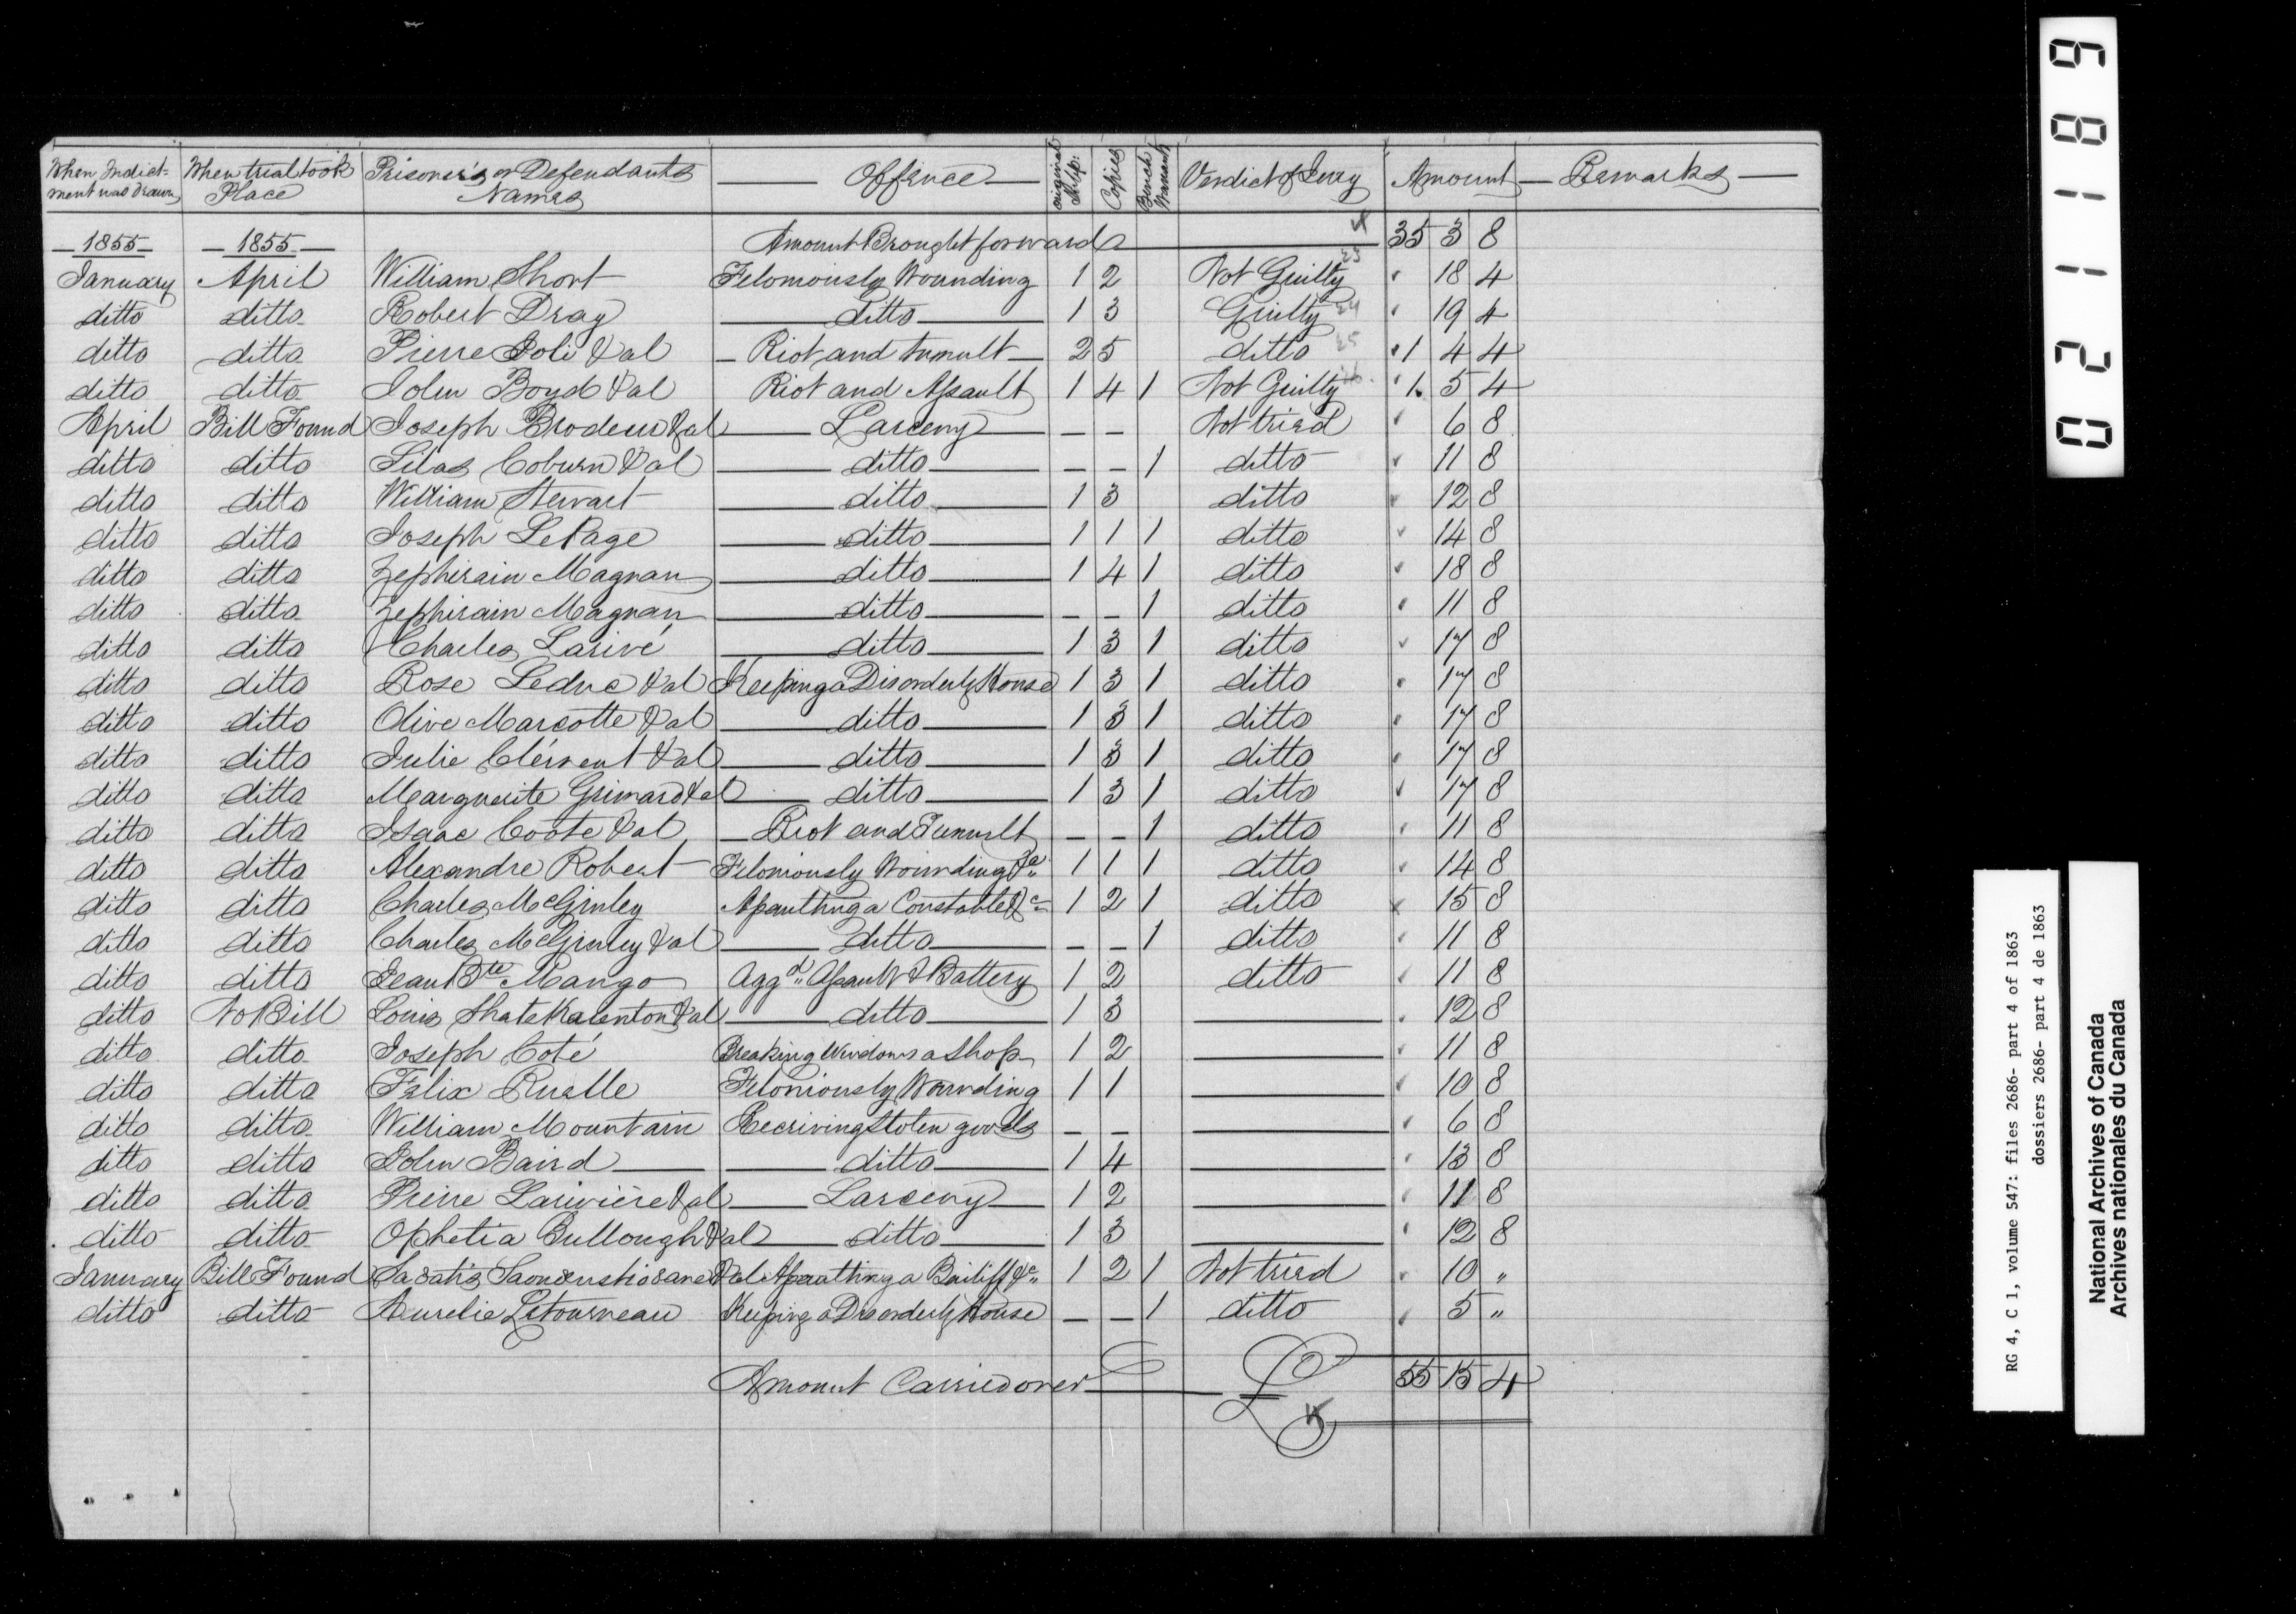 When Indict- When trial took Prisoners or Defendants Offence original Subp: Copies Bench Warrant Verdict of Jury Amount Remarks
ment was drawn Place Names
1855 1855 Amount Brought forward 35 3 8
January April William Short Feloniously Wounding 1 2 Not Guilty " 18 4
ditto ditto Robert Dray ditto 1 3 Guilty " 19 4
ditto ditto Pierre Joli & al Riot and tumult 2 5 ditto 1 4 4
ditto ditto John Boyd & al Riot and Assault 1 4 1 Not Guilty 1 5 4
April Bill Found Joseph Brodeur & al Larceny — — Not tried " 6 8
ditto ditto Silas Coburn & al ditto — — 1 ditto " 11 8
ditto ditto William Stewart ditto 1 3 ditto " 12 8
ditto ditto Joseph LePage ditto 1 1 1 ditto " 14 8
ditto ditto Zephirain Magnan ditto 1 4 1 ditto " 18 8
ditto ditto Zephirain Magnan ditto — — 1 ditto " 11 8
ditto ditto Charles Larivé ditto 1 3 1 ditto " 17 8
ditto ditto Rose Leduc & al Keeping a Disorderly House 1 3 1 ditto " 17 8
ditto ditto Olive Marcotte & al ditto 1 3 1 ditto " 17 8
ditto ditto Julie Clément & al ditto 1 3 1 ditto " 17 8
ditto ditto Marguerite Grimard & al ditto 1 3 1 ditto " 17 8
ditto ditto Isaac Coote & al Riot and Tumult — — 1 ditto " 11 8
ditto ditto Alexandre Robert Feloniously Wounding &c 1 1 1 ditto " 14 8
ditto ditto Charles McGinley Assaulting a Constable &c 1 2 1 ditto " 15 8
ditto ditto Charles McGinley & al ditto — — 1 ditto " 11 8
ditto ditto Jean Bte Mango Aggd Assault & Battery 1 2 ditto " 11 8
ditto No Bill Louis & al ditto 1 3 — " 12 8
ditto ditto Joseph Coté Breaking Windows a Shop 1 2 — " 11 8
ditto ditto Felix Ruelle Feloniously Wounding 1 1 — " 10 8
ditto ditto William Mountain Receiving Stolen goods — — — " 6 8
ditto ditto John Baird ditto 1 4 — " 13 8
ditto ditto Pierre Larivière & al Larceny 1 2 — " 11 8
ditto ditto Ophelia Cullough & al ditto 1 3 — " 12 8
January Bill Found & al Assaulting a Bailiff &c 1 2 1 Not tried " 10 "
ditto ditto Aurelie Letourneau Keeping a Disorderly House — — 1 ditto " 5 "
Amount Carried over £ 55 15 4
021189
RG 4, C 1, volume 547: files 2686- part 4 of 1863
dossiers 2686- part 4 de 1863
National Archives of Canada
Archives nationales du Canada